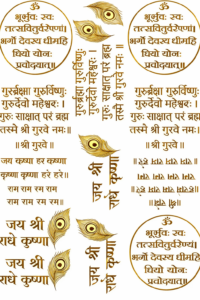 ॐ
भूर्भुवः स्वः
तत्सवितुर्वरेण्यं
भर्गो देवस्य धीमहि
धियो योनः
प्रचोदयात्॥
गुरुर्ब्रह्मा गुरुर्विष्णुः
गुरुर्देवो महेश्वरः ।
गुरुः साक्षात् परं ब्रह्म
तस्मै श्री गुरवे नमः॥
॥श्री गुरवे॥
जय कृष्णा हर कृष्णा
कृष्णा कृष्णा हरे हरे॥
राम राम रम राम
राम राम राम राम
जय श्री
राधे कृष्णा
जय श्री
राधे कृष्णा
गुरुर्ब्रह्मा गुरुर्विष्णुः
गुरुर्देवो महेश्वरः ।
गुरुः साक्षात् परं ब्रह्म
तस्मै श्री गुरवे नमः॥
जय श्री
राधे कृष्णा
जय श्री
राधे कृष्णा
ॐ
भूर्भुवः स्वः
तत्सवितुर्वरेण्यं
भर्गो देवस्य धीमहि
धियो योनः
प्रचोदयात्॥
गुरुर्ब्रह्मा गुरुर्विष्णुः
गुरुर्देवो महेश्वरः ।
गुरुः साक्षात् परं ब्रह्म
तस्मै श्री गुरवे नमः॥
॥श्री गुरवे॥
ॐ
भूर्भुवः स्वः
तत्सवितुर्वरेण्यं
भर्गो देवस्य धीमहि
धियो योनः
प्रचोदयात्॥